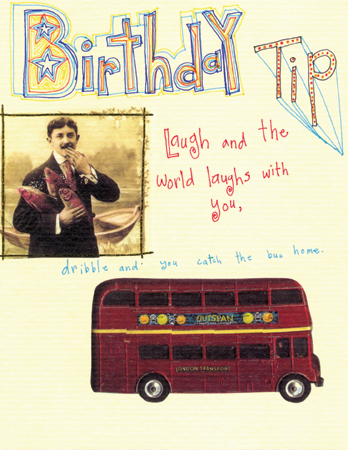 Birthday
Tip
Laugh and the
world laughs with
you,
dribble and you catch the bus home.
OUTSPAN
LONDON TRANSPORT